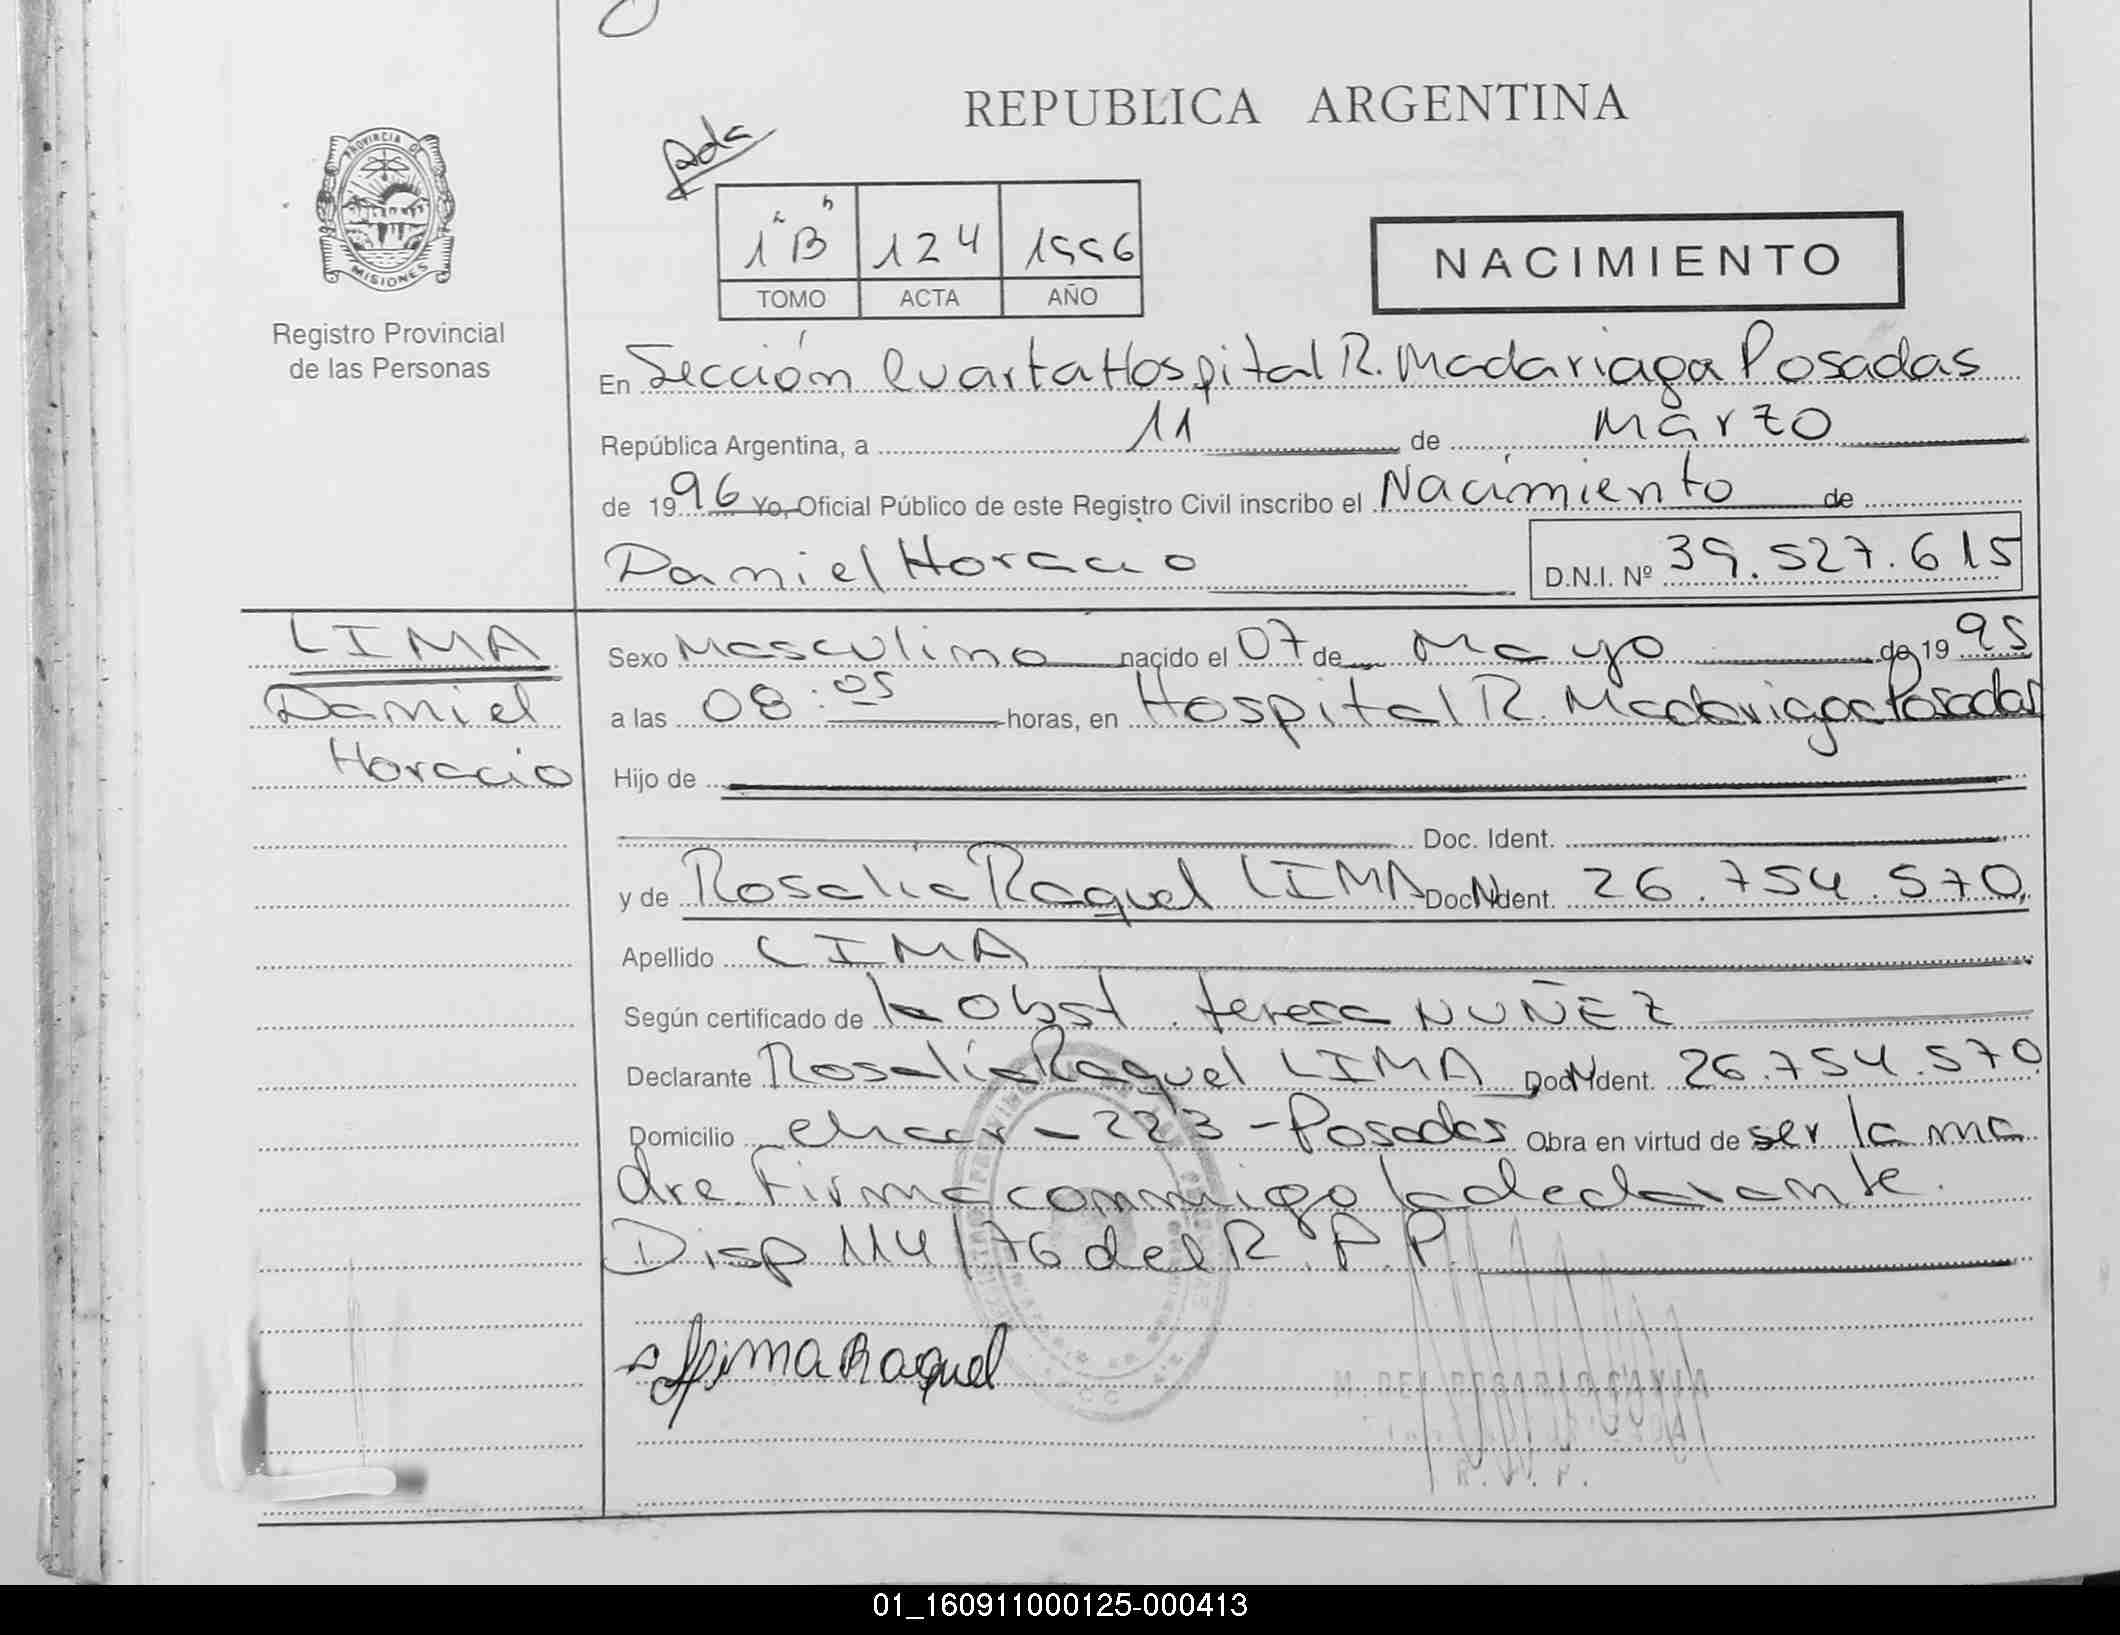 REPUBLICA ARGENTINA
Ada
PROVINCIA DE
MISIONES
Registro Provincial
de las Personas
1º "B" 124 1996
TOMO ACTA AÑO
NACIMIENTO
En Sección Cuarta Hospital R. Madariaga Posadas
República Argentina, a 11 de Marzo
de 1996 Yo, Oficial Público de este Registro Civil inscribo el Nacimiento de
Daniel Horacio D.N.I. Nº 39.527.615
LIMA
Daniel
Horacio
Sexo Masculino nacido el 07 de Mayo de 1995
a las 08:05 horas, en Hospital R. Madariaga Posadas
Hijo de
Doc. Ident.
y de Rosalia Raquel LIMA Doc. Ident. 26.754.570
Apellido LIMA
Según certificado de la Obst. Teresa NUÑEZ
Declarante Rosalía Raquel LIMA Doc. Ident. 26.754.570
Domicilio 223 - Posadas Obra en virtud de ser la ma
dre. Firma conmigo la declarante.
Disp 114/76 del R.P.P.
Lima Raquel
01_160911000125-000413